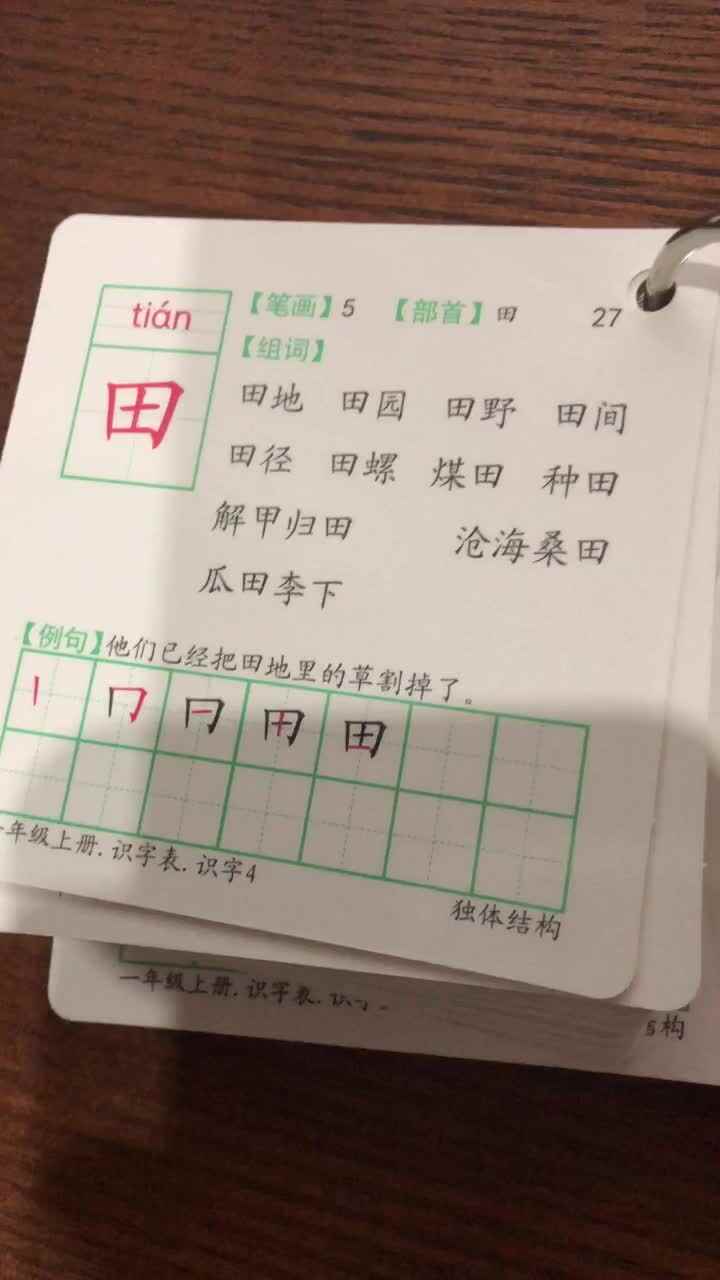 tián 【笔画】5 【部首】田 27
田 【组词】
田地 田园 田野 田间
田径 田螺 煤田 种田
解甲归田 沧海桑田
瓜田李下
【例句】他们已经把田地里的草割掉了。
田
年级上册.识字表.识字4
独体结构
一年级上册.识字表.
构